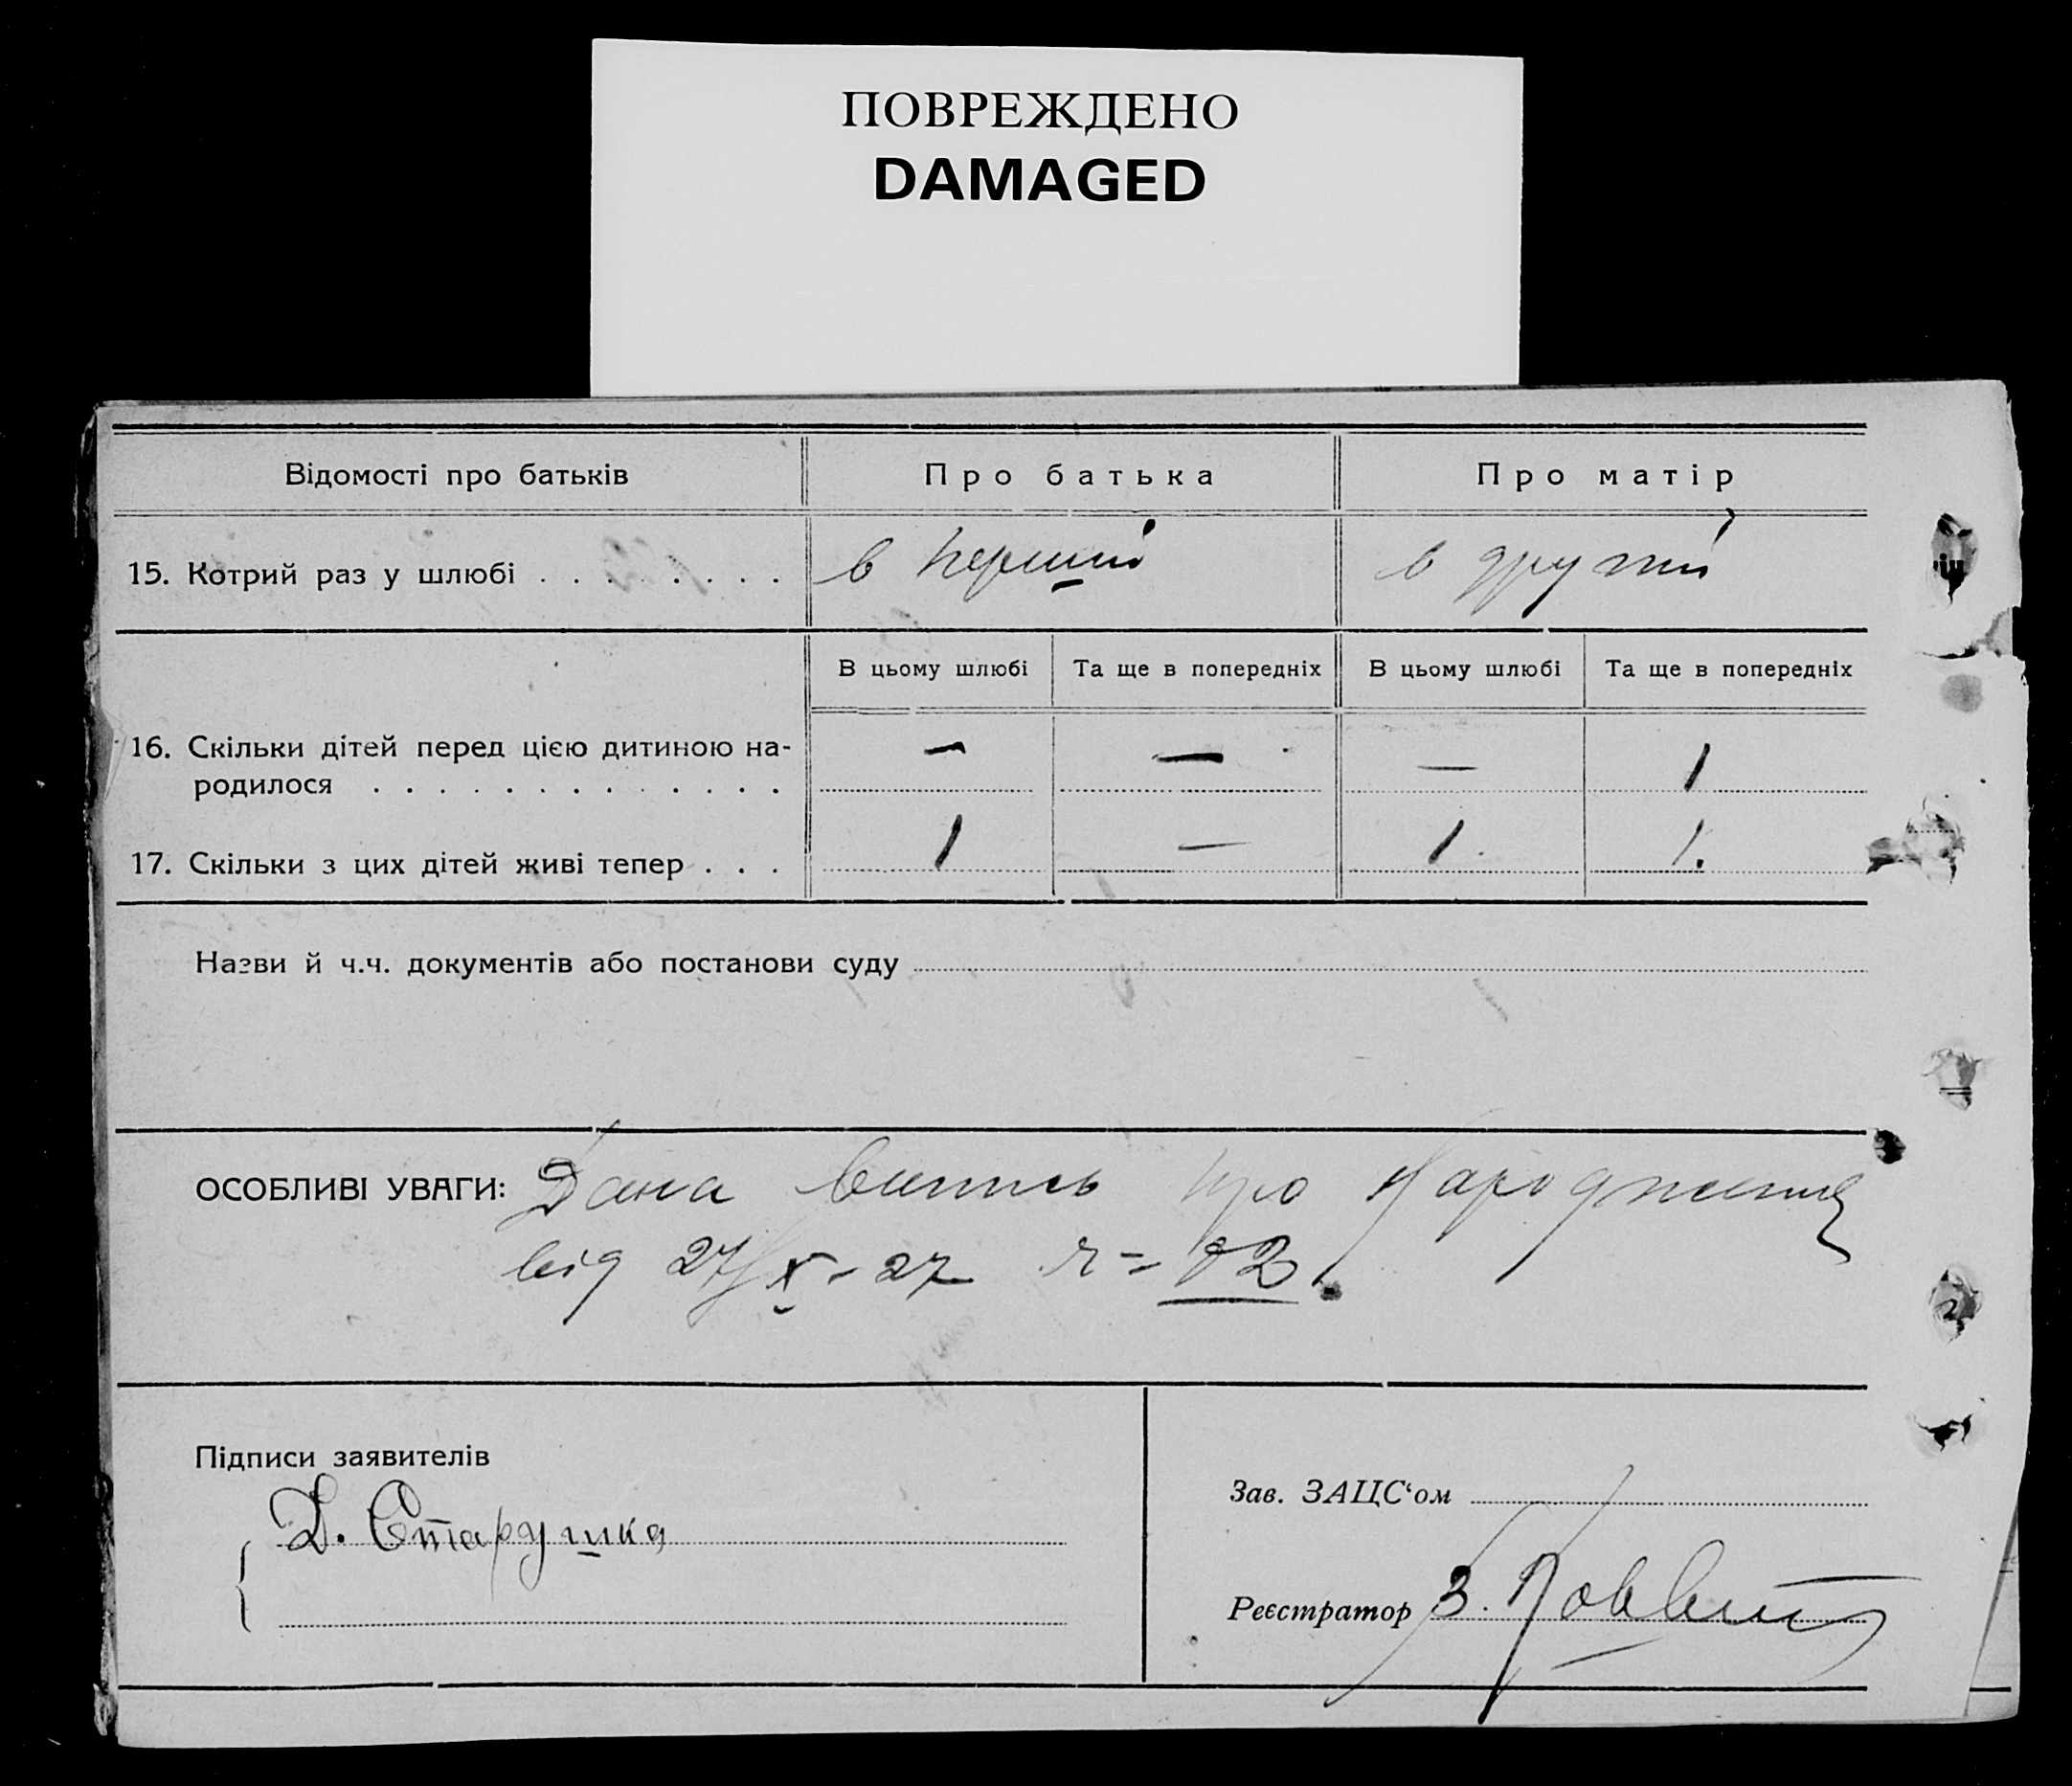 ПОВРЕЖДЕНО
DAMAGED
Відомості про батьків
Про батька
Про матір
15. Котрий раз у шлюбі . . . . . . . .
в перший
в другий
В цьому шлюбі
Та ще в попередніх
В цьому шлюбі
Та ще в попередніх
16. Скільки дітей перед цією дитиною на-
родилося . . . . . . . . . . . . .
— — — 1
17. Скільки з цих дітей живі тепер . . .
1 — 1. 1.
Назви й ч.ч. документів або постанови суду
ОСОБЛИВІ УВАГИ: Дана випись про народження
від 27/X-27
Підписи заявителів
Д. Старушка
Зав. ЗАЦС‘ом
Реєстратор З.